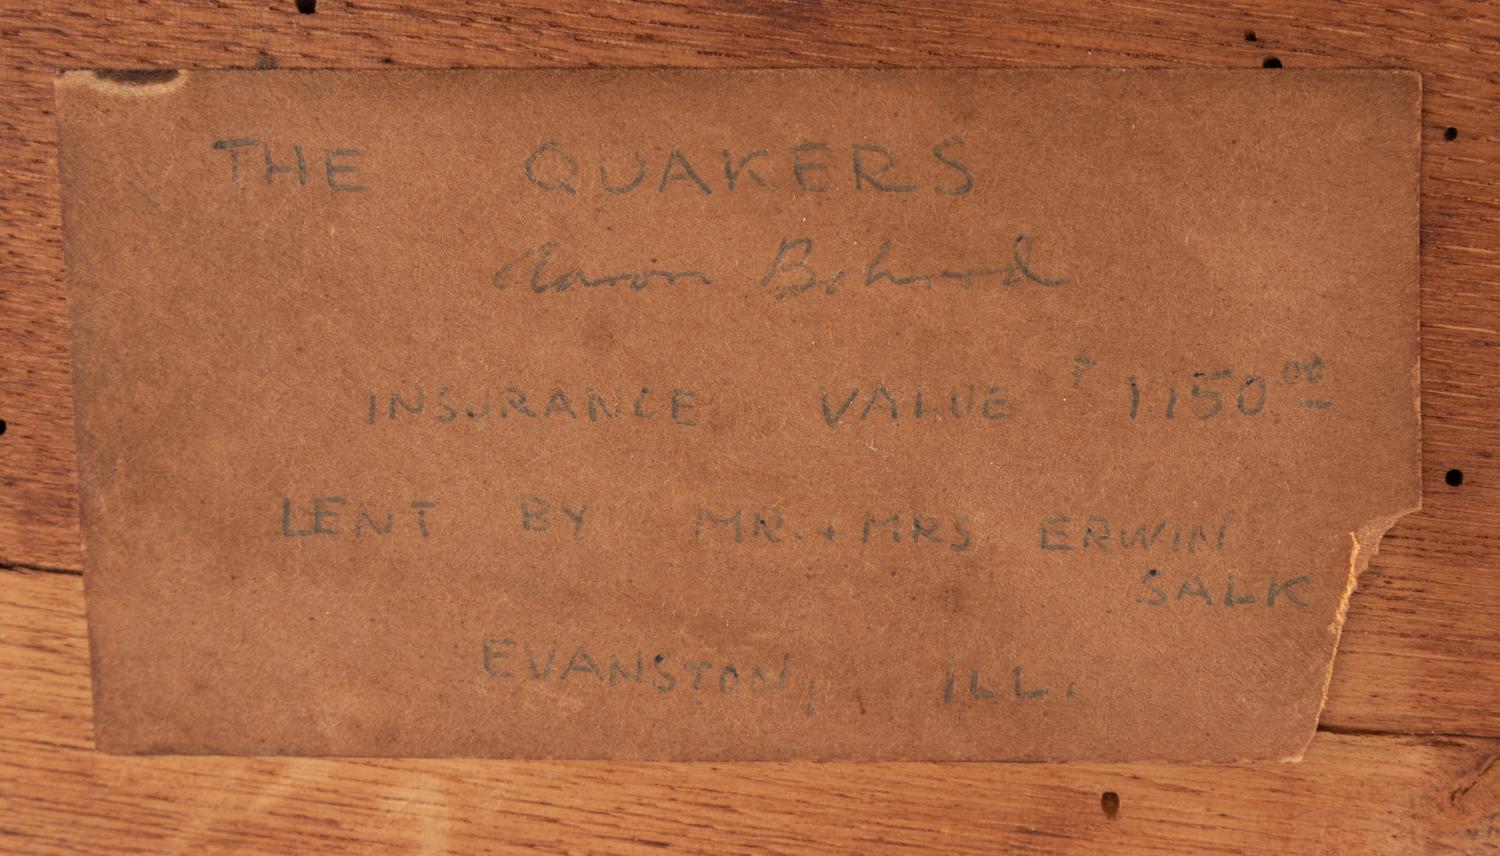 THE QUAKERS
Aaron Bohrod
INSURANCE VALUE $ 1750 00
LENT BY MR. + MRS. ERWIN
SALK
EVANSTON, ILL.